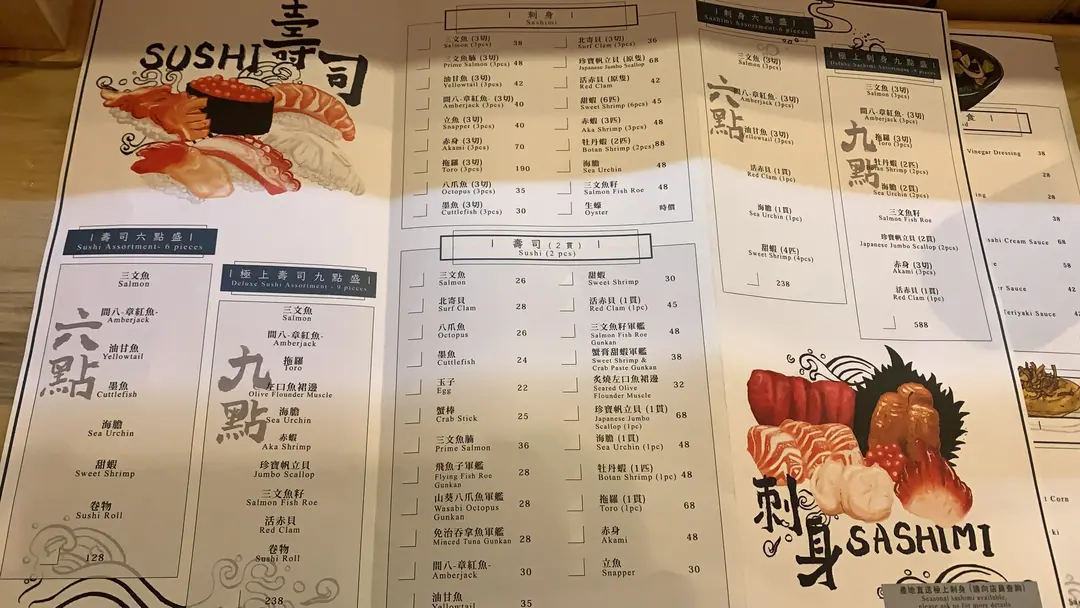 壽司
SUSHI
| 壽司六點盛 |
Sushi Assortment- 6 pieces
六點
三文魚
Salmon
間八-章紅魚-
Amberjack
油甘魚
Yellowtail
墨魚
Cuttlefish
海膽
Sea Urchin
甜蝦
Sweet Shrimp
卷物
Sushi Roll
128
| 極上壽司九點盛 |
Deluxe Sushi Assortment - 9 pieces
九點
三文魚
Salmon
間八-章紅魚-
Amberjack
拖羅
Toro
左口魚裙邊
Olive Flounder Muscle
海膽
Sea Urchin
赤蝦
Aka Shrimp
珍寶帆立貝
Jumbo Scallop
三文魚籽
Salmon Fish Roe
活赤貝
Red Clam
卷物
Sushi Roll
238
| 刺身 |
Sashimi
三文魚 (3切)
Salmon (3pcs) 38
三文魚腩 (3切)
Prime Salmon (3pcs) 48
油甘魚 (3切)
Yellowtail (3pcs) 42
間八-章紅魚- (3切)
Amberjack (3pcs) 40
立魚 (3切)
Snapper (3pcs) 40
赤身 (3切)
Akami (3pcs) 70
拖羅 (3切)
Toro (3pcs) 190
八爪魚 (3切)
Octopus (3pcs) 35
墨魚 (3切)
Cuttlefish (3pcs) 30
北寄貝 (3切)
Surf Clam (3pcs) 36
珍寶帆立貝 (原隻)
Japanese Jumbo Scallop 68
活赤貝 (原隻)
Red Clam 42
甜蝦 (6匹)
Sweet Shrimp (6pcs) 45
赤蝦 (3匹)
Aka Shrimp (3pcs) 48
牡丹蝦 (2匹)
Botan Shrimp (2pcs) 88
海膽
Sea Urchin 48
三文魚籽
Salmon Fish Roe 48
生蠔
Oyster 時價
| 壽司 (2貫) |
Sushi (2 pcs)
三文魚
Salmon 26
北寄貝
Surf Clam 28
八爪魚
Octopus 26
墨魚
Cuttlefish 24
玉子
Egg 22
蟹棒
Crab Stick 25
三文魚腩
Prime Salmon 36
飛魚子軍艦
Flying Fish Roe
Gunkan 28
山葵八爪魚軍艦
Wasabi Octopus
Gunkan 28
免治吞拿魚軍艦
Minced Tuna Gunkan 28
間八-章紅魚-
Amberjack 30
油甘魚
35
甜蝦
Sweet Shrimp 30
活赤貝 (1貫)
Red Clam (1pc) 45
三文魚籽軍艦
Salmon Fish Roe
Gunkan 48
蟹膏甜蝦軍艦
Sweet Shrimp &
Crab Paste Gunkan 38
炙燒左口魚裙邊
Seared Olive
Flounder Muscle 32
珍寶帆立貝 (1貫)
Japanese Jumbo
Scallop (1pc) 68
海膽 (1貫)
Sea Urchin (1pc) 48
牡丹蝦 (1匹)
Botan Shrimp (1pc) 48
拖羅 (1貫)
Toro (1pc) 68
赤身
Akami 48
立魚
Snapper 30
| 刺身六點盛 |
Sashimi Assortment-6 pieces
六點
三文魚 (3切)
Salmon (3pcs)
間八-章紅魚- (3切)
Amberjack (3pcs)
油甘魚 (3切)
Yellowtail (3pcs)
活赤貝 (1貫)
Red Clam (1pc)
海膽 (1貫)
Sea Urchin (1pc)
甜蝦 (4匹)
Sweet Shrimp (4pcs)
238
| 極上刺身九點盛 |
Deluxe Sashimi Assortment -9 pieces
九點
三文魚 (3切)
Salmon (3pcs)
間八-章紅魚- (3切)
Amberjack (3pcs)
拖羅 (3切)
Toro (3pcs)
牡丹蝦 (2匹)
Botan Shrimp (2pcs)
海膽 (2貫)
Sea Urchin (2pcs)
三文魚籽
Salmon Fish Roe
珍寶帆立貝 (2貫)
Japanese Jumbo Scallop (2pcs)
赤身 (3切)
Akami (3pcs)
活赤貝 (1貫)
Red Clam (1pc)
588
刺身
SASHIMI
產地直送極上刺身 (請向店員查詢)
Seasonal sashimi available,
please ask us for more details
食 |
Vinegar Dressing 38
28
38
Cream Sauce 68
58
Sauce 42
Teriyaki Sauce
Corn